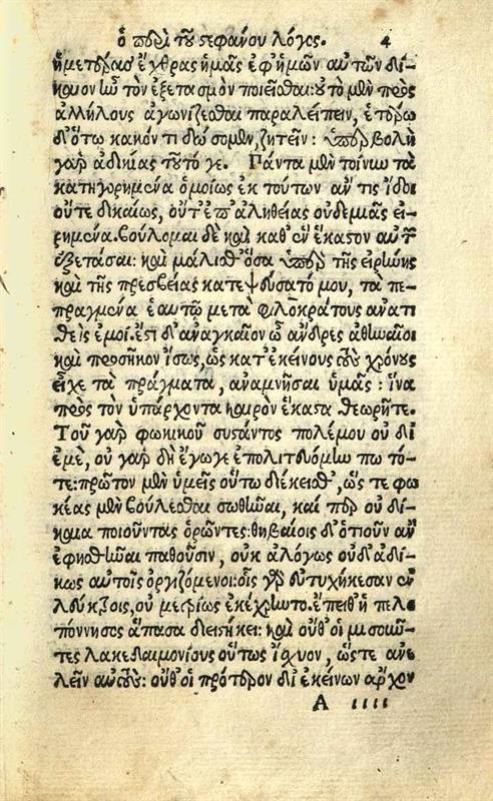 ὁ περὶ τοῦ στεφάνου λόγος. 4
ἡμετέρας ἔχθρας ἡμᾶς ἐφ' ἡμῶν αὐτῶν δί-
καιον ὦ τὸν ἐξετασμὸν ποιεῖσθαι: τὸ μὲν πρὸς
ἀλλήλους ἀγωνίζεσθαι παραλείπειν, ἑτέρῳ
δ' ὅτῳ κακόν τι δώσομεν, ζητεῖν: ὑπερβολὴ
γὰρ ἀδικίας τοῦτό γε. Πάντα μὲν τοίνυν τὰ
κατηγορημένα ὁμοίως ἐκ τούτων ἄν τις ἴδοι
οὔτε δικαίως, οὔτ' ἐπ' ἀληθείας οὐδεμιᾶς εἰ-
ρημένα. βούλομαι δὲ καὶ καθ' ἓν ἕκαστον αὐτῶν
ἐξετάσαι: καὶ μάλισθ' ὅσα ὑπὲρ τῆς εἰρήνης
καὶ τῆς πρεσβείας κατεψεύσατό μου, τὰ πε-
πραγμένα ἑαυτῷ μετὰ φιλοκράτους ἀνατι
θεὶς ἐμοί. ἔστι δ' ἀναγκαῖον ὦ ἄνδρες ἀθηναῖοι
καὶ προσῆκον ἴσως, ὡς κατ' ἐκείνους τοὺς χρόνους
εἶχε τὰ πράγματα, ἀναμνῆσαι ὑμᾶς: ἵνα
πρὸς τὸν ὑπάρχοντα καιρὸν ἕκαστα θεωρῆτε.
Τοῦ γὰρ φωκικοῦ συστάντος πολέμου οὐ δι
ἐμὲ, οὐ γὰρ δὴ ἔγωγε ἐπολιτευόμην πω τό-
τε: πρῶτον μὲν ὑμεῖς οὕτω διέκεισθ', ὥς τε φω
κέας μὲν βούλεσθαι σωθῆναι, καί περ οὐ δί-
καια ποιοῦντας ὁρῶντες: θηβαίοις δ' ὁτιοῦν ἂν
ἐφησθῆναι παθοῦσιν, οὐκ ἀλόγως οὐδ' ἀδί-
κως αὐτοῖς ὀργιζόμενοι: οἷς γὰρ εὐτυχήκεσαν ἐν
λεύκτροις, οὐ μετρίως ἐκέχρηντο. ἔπειθ' ἡ πελο
πόννησος ἅπασα διειστήκει: καὶ οὔθ' οἱ μισοῦν-
τες λακεδαιμονίους οὕτως ἴσχυον, ὥστε ἀνε
λεῖν αὐτούς: οὔθ' οἱ πρότερον δι' ἐκείνων ἄρχον
A iiii